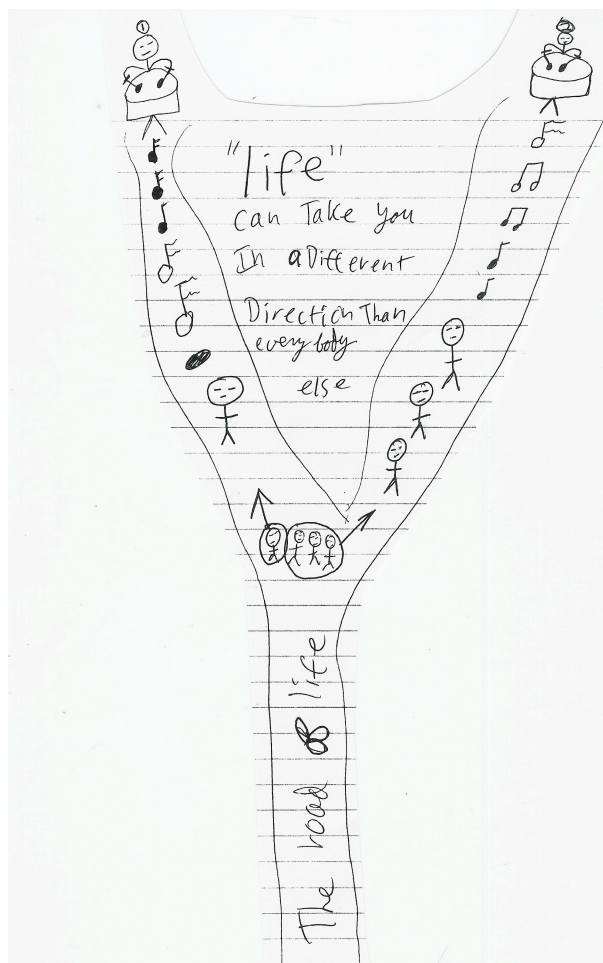 "life"
can Take you
In a Different
Direction Than
every body
else
The road of life